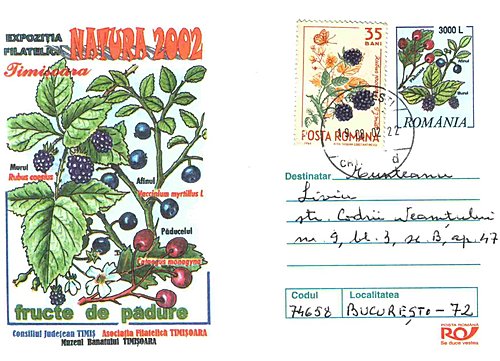 EXPOZIŢIA
FILATELICĂ
NATURA 2002
Timişoara
Murul
Rubus caesius
Afinul
Vaccinium myrtillus L
Păducelul
Crataegus monogyna
fructe de pădure
Consiliul Judeţean TIMIŞ Asociaţia Filatelică TIMIŞOARA
Muzeul Banatului TIMIŞOARA
35
BANI
POSTA ROMANA
3000 L
Afinul
Murul
ROMANIA
19.08.02.22
d
Destinatar Munteanu
Liviu
str. Codrii Neamtului
nr. 9, bl. 3, sc. B, ap. 47
Codul
74658
Localitatea
BUCUREŞTO - 72
POŞTA ROMÂNĂ
RO
Se duce vestea